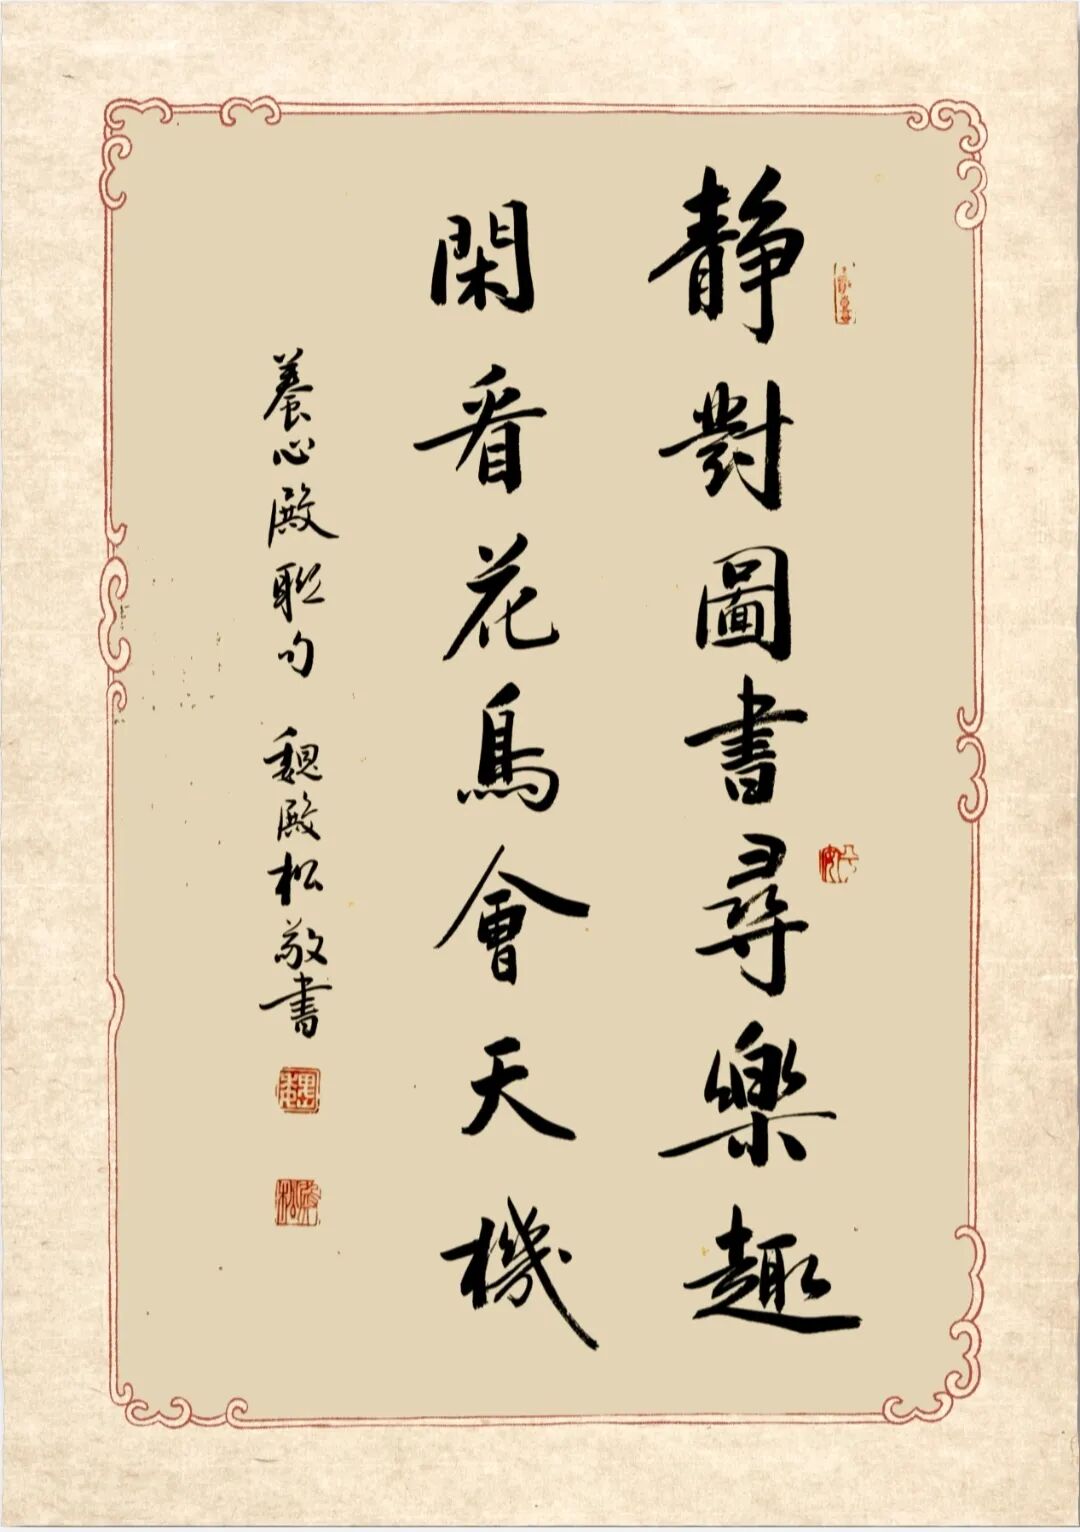 静對圖書尋樂趣
閑看花鳥會天機
養心殿聯句 魏殿松敬書